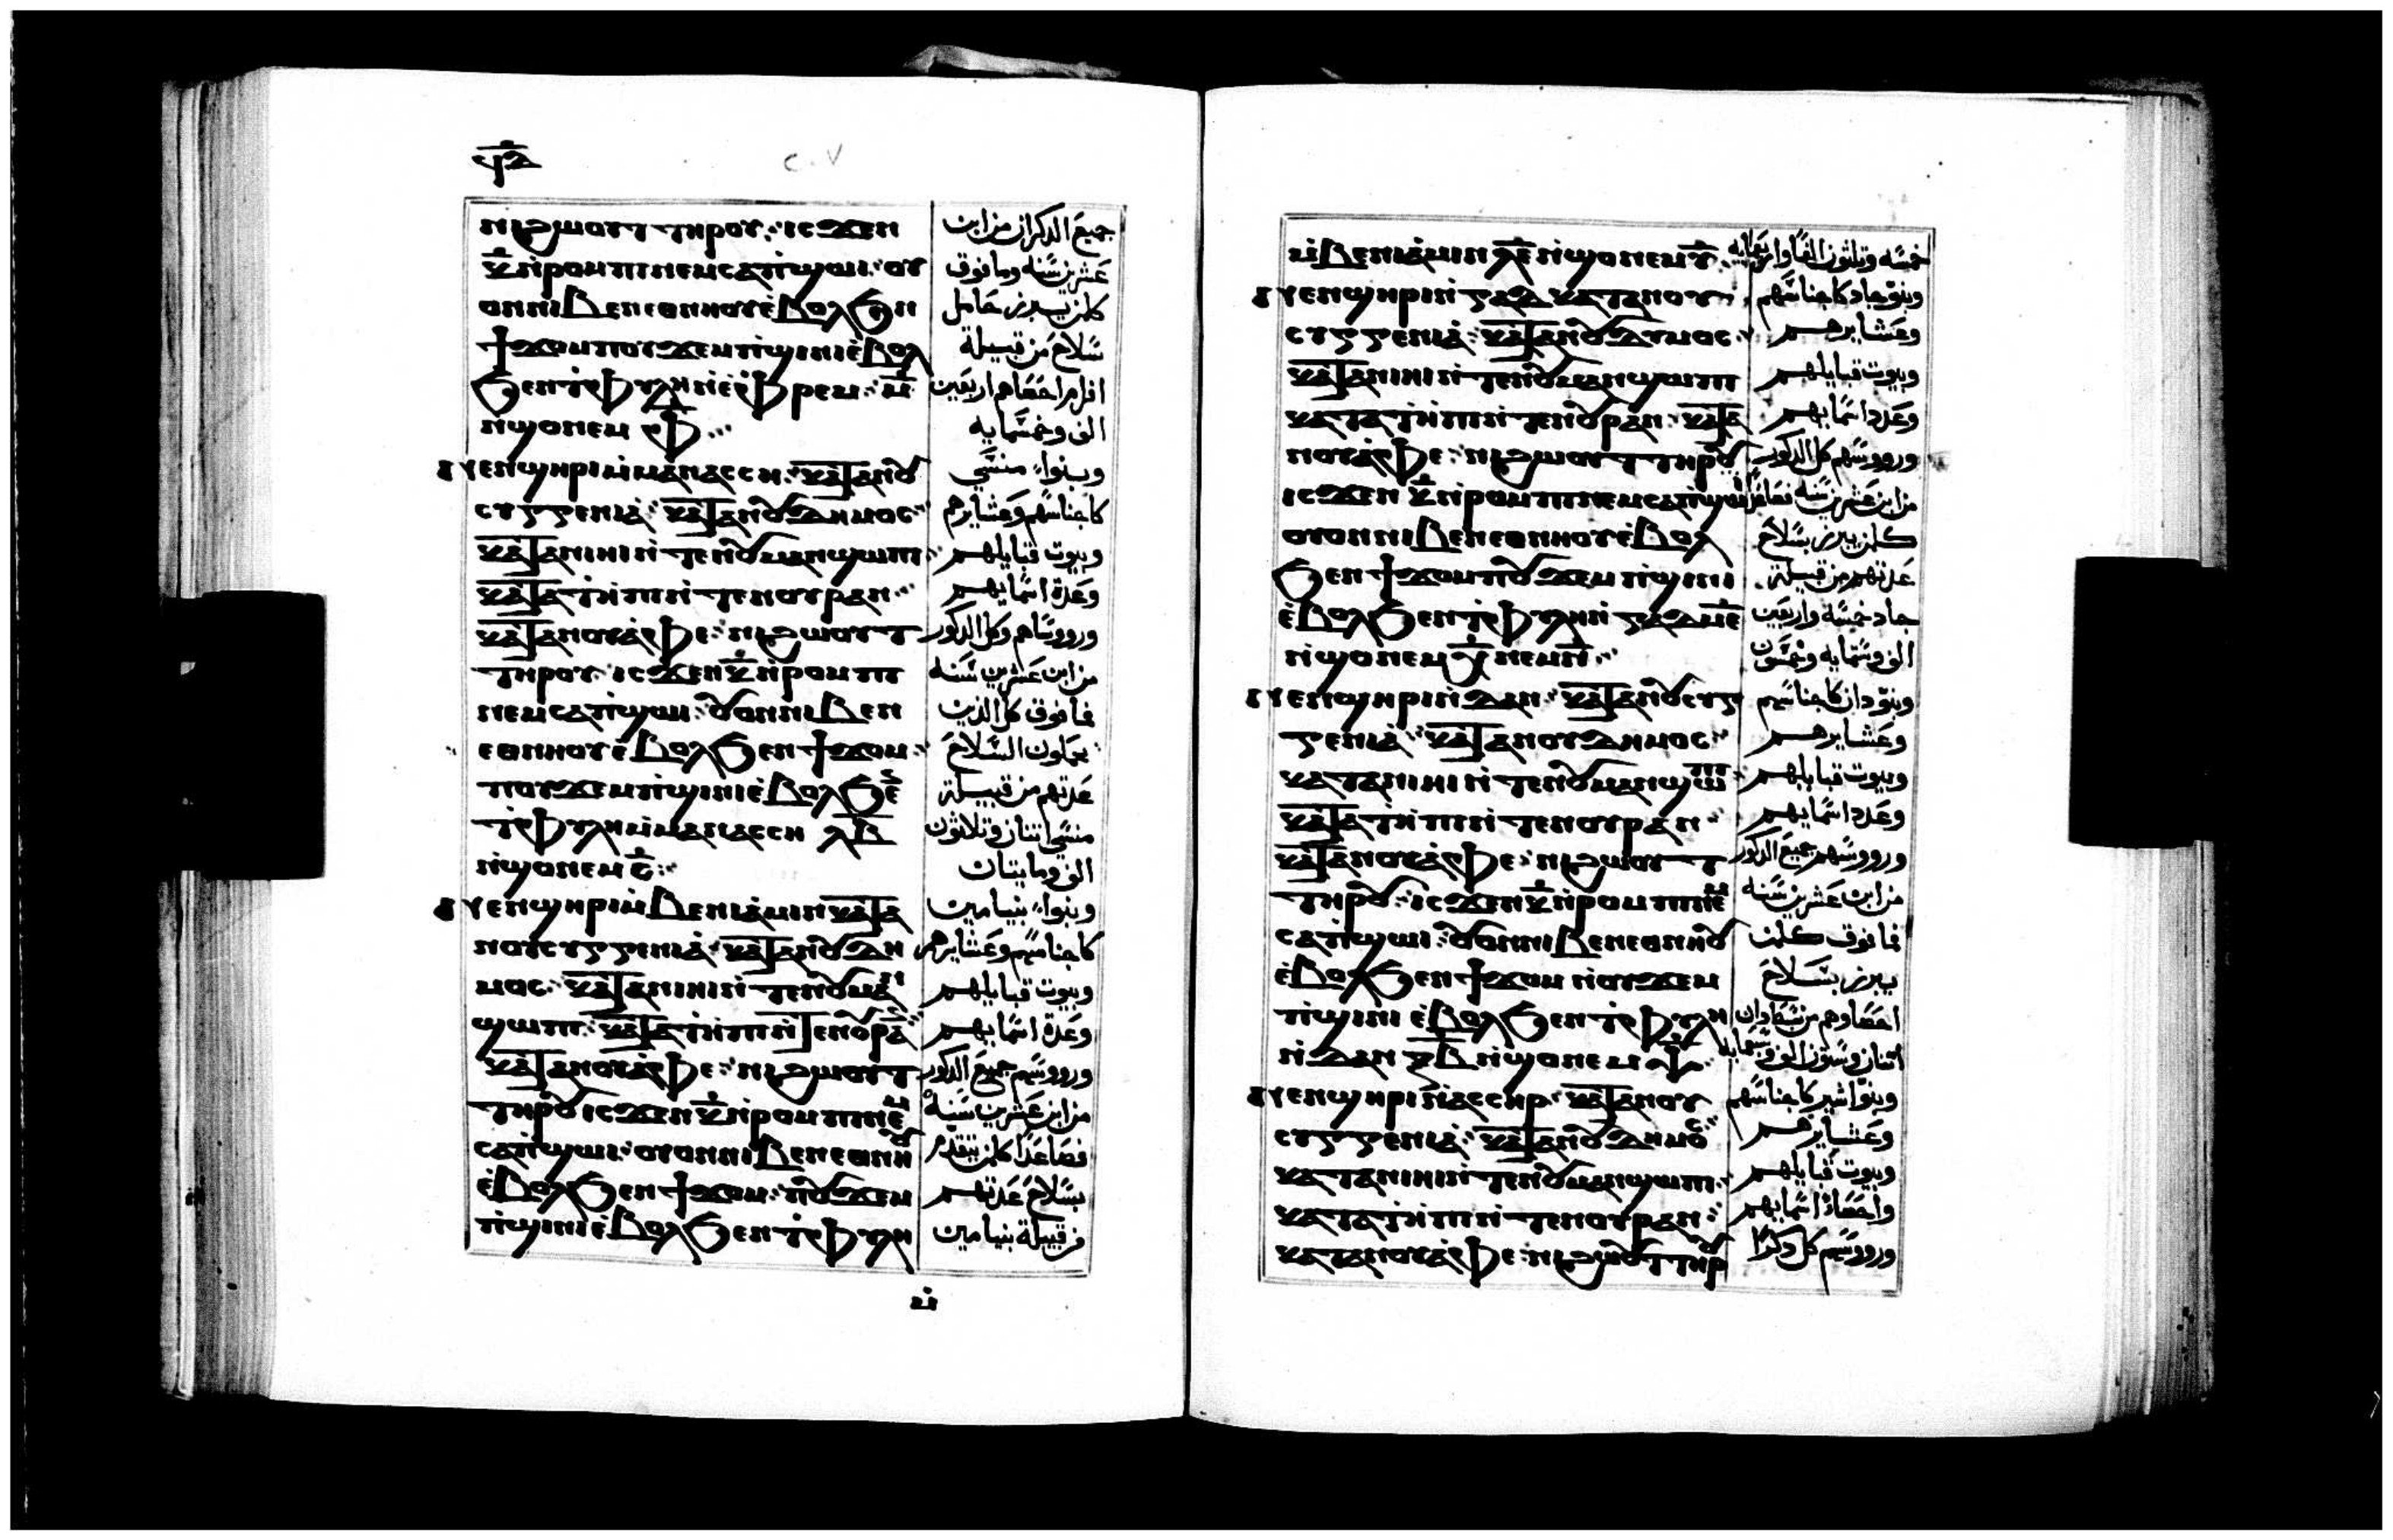 ϥ̅ⲇ̅
ⲛⲓϩⲱⲟⲩⲧ ⲧⲏⲣⲟⲩ: ⲓⲥϫⲉⲛ
ⲕ̅ ⲛ̀ⲣⲟⲙⲡⲓ ⲛⲉⲙ ⲥⲁⲡ̀ϣⲱⲓ: ⲟⲩ
ⲟⲛ ⲛⲓⲃⲉⲛ ⲉⲑⲛⲏⲟⲩ ⲉ̀ⲃⲟⲗ ϧⲉⲛ
ϯϫⲟⲙ ⲡⲟⲩϫⲉⲙⲡ̀ϣⲓⲛⲓ ⲉ̀ⲃⲟⲗ
ϧⲉⲛ ⲧ̀ⲫⲩⲗⲏ ⲛ̀ⲉ̀ⲫⲣⲉⲙ: ⲙ̅
ⲛ̀ϣⲟ ⲛⲉⲙ ⲫ̅:
ⲛⲉⲛϣⲏⲣⲓ ⲙ̀ⲙⲁⲛⲁⲥⲥⲏ: ⲕⲁⲧⲁ ⲛⲟⲩ
ⲥⲩⲅⲅⲉⲛⲓⲁ̀: ⲕⲁⲧⲁ ⲛⲟⲩⲇⲏⲙⲟⲥ
ⲕⲁⲧⲁ ⲛⲓⲏⲓ ⲛ̀ⲧⲉ ⲛⲟⲩⲙⲁⲛϣⲱⲡⲓ
ⲕⲁⲧⲁ ⲧ̀ⲏⲡⲓ ⲛ̀ⲧⲉ ⲛⲟⲩⲣⲁⲛ:
ⲕⲁⲧⲁ ⲛⲟⲩⲁ̀ⲫⲉ: ⲛⲓϩⲱⲟⲩⲧ
ⲧⲏⲣⲟⲩ: ⲓⲥϫⲉⲛ ⲕ̅ ⲛ̀ⲣⲟⲙⲡⲓ
ⲛⲉⲙ ⲥⲁⲡ̀ϣⲱⲓ: ⲟⲩⲟⲛ ⲛⲓⲃⲉⲛ
ⲉⲑⲛⲏⲟⲩ ⲉ̀ⲃⲟⲗ ϧⲉⲛ ϯϫⲟⲙ:
ⲡⲟⲩϫⲉⲙⲡ̀ϣⲓⲛⲓ ⲉ̀ⲃⲟⲗ ϧⲉⲛ
ⲧ̀ⲫⲩⲗⲏ ⲙ̀ⲙⲁⲛⲁⲥⲥⲏ ⲗ̅ⲃ̅
ⲛ̀ϣⲟ ⲛⲉⲙ ⲥ̅:
ⲛⲉⲛϣⲏⲣⲓ ⲙ̀ⲃⲉⲛⲓⲁ̀ⲙⲓⲛ ⲕⲁⲧⲁ
ⲛⲟⲩⲥⲩⲅⲅⲉⲛⲓⲁ̀: ⲕⲁⲧⲁ ⲛⲟⲩⲇⲏ
ⲙⲟⲥ: ⲕⲁⲧⲁ ⲛⲓⲏⲓ ⲛ̀ⲧⲉ ⲛⲟⲩⲙⲁⲛ
ϣⲱⲡⲓ: ⲕⲁⲧⲁ ⲧ̀ⲏⲡⲓ ⲛ̀ⲧⲉ ⲛⲟⲩⲣⲁⲛ
ⲕⲁⲧⲁ ⲛⲟⲩⲁ̀ⲫⲉ: ⲛⲓϩⲱⲟⲩⲧ
ⲧⲏⲣⲟⲩ ⲓⲥϫⲉⲛ ⲕ̅ ⲛ̀ⲣⲟⲙⲡⲓ ⲛⲉⲙ
ⲥⲁⲡ̀ϣⲱⲓ: ⲟⲩⲟⲛ ⲛⲓⲃⲉⲛ ⲉⲑⲛⲏⲟⲩ
ⲉ̀ⲃⲟⲗ ϧⲉⲛ ϯϫⲟⲙ: ⲡⲟⲩϫⲉⲙ
ⲡ̀ϣⲓⲛⲓ ⲉ̀ⲃⲟⲗ ϧⲉⲛ ⲧ̀ⲫⲩⲗⲏ
ⲙ̀
جميع الدكران من ابن
عشرين سنه وما فوق
كلمن يبرز حامل
سلاح من قبيلة
افرام احصاهم اربعين
الف وخمسمايه
وبنوا منسي
كاجناسهم وعشايرهم
وبيوت قبايلهم
وعدة اسمايهم
ورووسهم وكل الدكور
من ابن عشرين سنه
فما فوق كل الذين
يحملون السلاح
عدتهم من قبيلة
منسي اتنان وتلاتون
الف ومايتان
وبنوا بنيامين
كاجناسهم وعشايرهم
وبيوت قبايلهم
وعدة اسمايهم
ورووسهم جميع الدكور
من ابن عشرين سنه
فصاعدا كلمن يتقدم
بسلاح عدتهم
من قبيلة بنيامين
ⲙ̀ⲃⲉⲛⲓⲁ̀ⲙⲓⲛ ⲗ̅ⲉ̅ ⲛ̀ϣⲟ ⲛⲉⲙ ⲩ̅
ⲛⲉⲛϣⲏⲣⲓ ⲛ̀ⲅⲁⲇ ⲕⲁⲧⲁ ⲛⲟⲩ
ⲥⲩⲅⲅⲉⲛⲓⲁ̀: ⲕⲁⲧⲁ ⲛⲟⲩⲇⲩⲙⲟⲥ
ⲕⲁⲧⲁ ⲛⲓⲏⲓ ⲛ̀ⲧⲉ ⲛⲟⲩⲙⲁⲛϣⲱⲡⲓ
ⲕⲁⲧⲁ ⲧ̀ⲏⲡⲓ ⲛ̀ⲧⲉ ⲛⲟⲩⲣⲁⲛ: ⲕⲁⲧⲁ
ⲛⲟⲩⲁ̀ⲫⲉ: ⲛⲓϩⲱⲟⲩⲧ ⲧⲏⲣⲟⲩ
ⲓⲥϫⲉⲛ ⲕ̅ ⲛ̀ⲣⲟⲙⲡⲓ ⲛⲉⲙ ⲥⲁⲡ̀ϣⲱⲓ
ⲟⲩⲟⲛ ⲛⲓⲃⲉⲛ ⲉⲑⲛⲏⲟⲩ ⲉ̀ⲃⲟⲗ
ϧⲉⲛ ϯϫⲟⲙ ⲡⲟⲩϫⲉⲙⲡ̀ϣⲓⲛⲓ
ⲉ̀ⲃⲟⲗ ϧⲉⲛ ⲧ̀ⲫⲩⲗⲏ ⲛ̀ⲅⲁⲇ ⲙ̅ⲉ̅
ⲛ̀ϣⲟ ⲛⲉⲙ ⲭ̅ ⲛⲉⲙ ⲛ̅:
ⲛⲉⲛϣⲏⲣⲓ ⲛ̀ⲇⲁⲛ: ⲕⲁⲧⲁ ⲛⲟⲩⲥⲩⲅ
ⲅⲉⲛⲓⲁ̀: ⲕⲁⲧⲁ ⲛⲟⲩⲇⲏⲙⲟⲥ
ⲕⲁⲧⲁ ⲛⲓⲏⲓ ⲛ̀ⲧⲉ ⲛⲟⲩⲙⲁⲛϣⲱⲡⲓ
ⲕⲁⲧⲁ ⲧ̀ⲏⲡⲓ ⲛ̀ⲧⲉ ⲛⲟⲩⲣⲁⲛ
ⲕⲁⲧⲁ ⲛⲟⲩⲁ̀ⲫⲉ: ⲛⲓϩⲱⲟⲩⲧ
ⲧⲏⲣⲟⲩ: ⲓⲥϫⲉⲛ ⲕ̅ ⲛ̀ⲣⲟⲙⲡⲓ ⲛⲉⲙ
ⲥⲁⲡ̀ϣⲱⲓ: ⲟⲩⲟⲛ ⲛⲓⲃⲉⲛ ⲉⲑⲛⲏⲟⲩ
ⲉ̀ⲃⲟⲗ ϧⲉⲛ ϯϫⲟⲙ ⲡⲟⲩϫⲉⲙ
ⲡ̀ϣⲓⲛⲓ ⲉ̀ⲃⲟⲗ ϧⲉⲛ ⲧ̀ⲫⲩⲗⲏ
ⲛ̀ⲇⲁⲛ ⲝ̅ⲃ̅ ⲛ̀ϣⲟ ⲛⲉⲙ
ⲛⲉⲛϣⲏⲣⲓ ⲛ̀ⲁⲥⲥⲏⲣ: ⲕⲁⲧⲁ ⲛⲟⲩ
ⲥⲩⲅⲅⲉⲛⲓⲁ̀: ⲕⲁⲧⲁ ⲛⲟⲩⲇⲏⲙⲟⲥ
ⲕⲁⲧⲁ ⲛⲓⲏⲓ ⲛ̀ⲧⲉ ⲛⲟⲩⲙⲁⲛϣⲱⲡⲓ
ⲕⲁⲧⲁ ⲧ̀ⲏⲡⲓ ⲛ̀ⲧⲉ ⲛⲟⲩⲣⲁⲛ:
ⲕⲁⲧⲁ ⲛⲟⲩⲁ̀ⲫⲉ: ⲛⲓϩⲱⲟⲩⲧ ⲧⲏⲣⲟⲩ
خمسه وتلتون الفا واربعمايه
وبنو جاد كاجناسهم
وعشايرهم
وبيوت قبايلهم
وعدد اسمايهم
ورووسهم كل الدكور
من ابن عشرين سنه فصاعدا
كلمن يبرز بسلاح
عدتهم من قبيلة
جاد خمسه واربعين
الف وستمايه وخمسون
وبنو دان كاجناسهم
وعشايرهم
وبيوت قبايلهم
وعدد اسمايهم
ورووسهم جميع الدكور
من ابن عشرين سنه
فما فوق كلمن
يبرز بسلاح
احصاوهم من دان
اتنان وستون الف
وبنو اشير كاجناسهم
وعشايرهم
وبيوت قبايلهم
واحصاء اسمايهم
ورووسهم كل دكرا